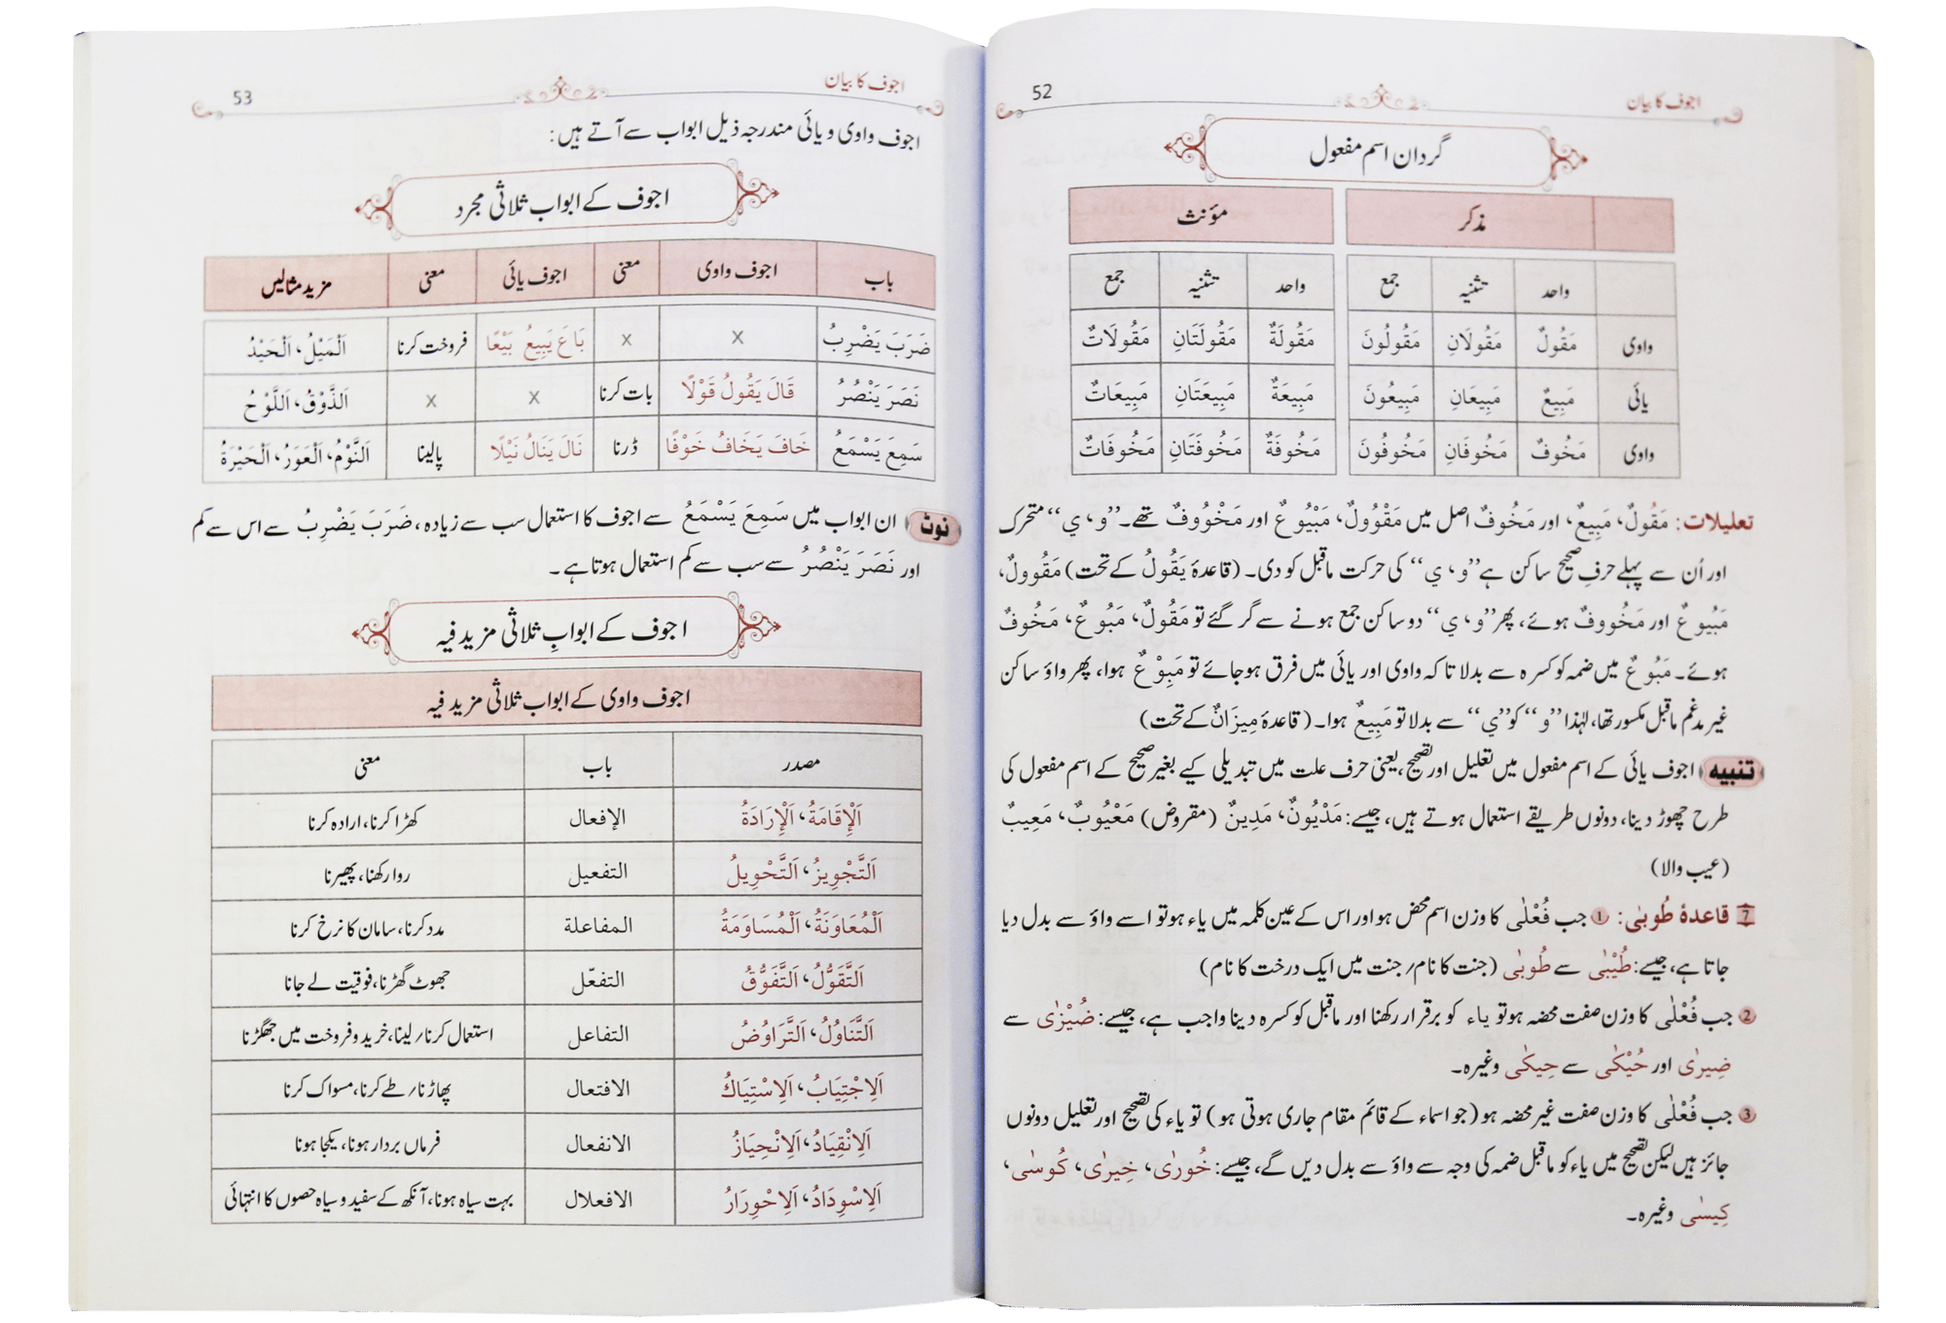 اجوف کا بیان 52
گردان اسم مفعول
مذکر مؤنث
واحد تثنیہ جمع واحد تثنیہ جمع
واوی مَقُولٌ مَقُولَانِ مَقُولُونَ مَقُولَةٌ مَقُولَتَانِ مَقُولَاتٌ
یائی مَبِيعٌ مَبِيعَانِ مَبِيعُونَ مَبِيعَةٌ مَبِيعَتَانِ مَبِيعَاتٌ
واوی مَخُوفٌ مَخُوفَانِ مَخُوفُونَ مَخُوفَةٌ مَخُوفَتَانِ مَخُوفَاتٌ
تعلیلات: مَقُولٌ، مَبِيعٌ، اور مَخُوفٌ اصل میں مَقْوُولٌ، مَبْيُوعٌ اور مَخْوُوفٌ تھے۔ ”و، ي“ متحرک
اور اُن سے پہلے حرفِ صحیح ساکن ہے ”و، ي“ کی حرکت ماقبل کو دی۔ (قاعدۂ يَقُولُ کے تحت) مَقُوولٌ،
مَبُيوعٌ اور مَخُووفٌ ہوئے، پھر ”و، ي“ دو ساکن جمع ہونے سے گر گئے تو مَقُولٌ، مَبُوعٌ، مَخُوفٌ
ہوئے۔ مَبُوعٌ میں ضمہ کو کسرہ سے بدلا تا کہ واوی اور یائی میں فرق ہو جائے تو مَبِوْعٌ ہوا، پھر واؤ ساکن
غیر مدغم ماقبل مکسور تھا، لہٰذا ”و“ کو ”ي“ سے بدلا تو مَبِيعٌ ہوا۔ (قاعدۂ مِيزَانٌ کے تحت)
تنبیہ اجوف یائی کے اسم مفعول میں تعلیل اور تصحیح، یعنی حرف علت میں تبدیلی کیے بغیر صحیح کے اسم مفعول کی
طرح چھوڑ دینا، دونوں طریقے استعمال ہوتے ہیں، جیسے: مَدْيُونٌ، مَدِينٌ (مقروض) مَعْيُوبٌ، مَعِيبٌ
(عیب والا)
7 قاعدۂ طُوبٰی: 1 جب فُعْلٰى کا وزن اسم محض ہو اور اس کے عین کلمہ میں یاء ہو تو اسے واؤ سے بدل دیا
جاتا ہے، جیسے: طُيْبٰى سے طُوبٰى (جنت کا نام/ جنت میں ایک درخت کا نام)
2 جب فُعْلٰى کا وزن صفت محضہ ہو تو یاء کو برقرار رکھنا اور ماقبل کو کسرہ دینا واجب ہے، جیسے: ضُيْزٰى سے
ضِيزٰى اور حُيْكٰى سے حِيكٰى وغیرہ۔
3 جب فُعْلٰى کا وزن صفت غیر محضہ ہو (جو اسماء کے قائم مقام جاری ہوتی ہو) تو یاء کی تصحیح اور تعلیل دونوں
جائز ہیں لیکن تصحیح میں یاء کو ماقبل ضمہ کی وجہ سے واؤ سے بدل دیں گے، جیسے: خُورٰى، خِيرٰى، كُوسٰى،
كِيسٰى وغیرہ۔
اجوف کا بیان 53
اجوف واوی و یائی مندرجہ ذیل ابواب سے آتے ہیں:
اجوف کے ابواب ثلاثی مجرد
باب اجوف واوی معنی اجوف یائی معنی مزید مثالیں
ضَرَبَ يَضْرِبُ x x بَاعَ يَبِيعُ بَيْعًا فروخت کرنا اَلْمَيْلُ، اَلْحَيْدُ
نَصَرَ يَنْصُرُ قَالَ يَقُولُ قَوْلًا بات کرنا x x اَلذَّوْقُ، اَللَّوْحُ
سَمِعَ يَسْمَعُ خَافَ يَخَافُ خَوْفًا ڈرنا نَالَ يَنَالُ نَيْلًا پالینا اَلنَّوْمُ، اَلْعَوَرُ، اَلْحَيْرَةُ
نوٹ ان ابواب میں سَمِعَ يَسْمَعُ سے اجوف کا استعمال سب سے زیادہ، ضَرَبَ يَضْرِبُ سے اس سے کم
اور نَصَرَ يَنْصُرُ سے سب سے کم استعمال ہوتا ہے۔
اجوف کے ابوابِ ثلاثی مزید فیہ
اجوف واوی کے ابواب ثلاثی مزید فیہ
مصدر باب معنی
اَلْإِقَامَةُ، اَلْإِرَادَةُ الإفعال کھڑا کرنا، ارادہ کرنا
اَلتَّجْوِيزُ، اَلتَّحْوِيلُ التفعيل روا رکھنا، پھیرنا
اَلْمُعَاوَنَةُ، اَلْمُسَاوَمَةُ المفاعلة مدد کرنا، سامان کا نرخ کرنا
اَلتَّقَوُّلُ، اَلتَّفَوُّقُ التفعّل جھوٹ گھڑنا، فوقیت لے جانا
اَلتَّنَاوُلُ، اَلتَّرَاوُضُ التفاعل استعمال کرنا/ لینا، خرید و فروخت میں جھگڑنا
اَلِاجْتِيَابُ، اَلِاسْتِيَاكُ الافتعال پھاڑنا/ طے کرنا، مسواک کرنا
اَلِانْقِيَادُ، اَلِانْحِيَازُ الانفعال فرماں بردار ہونا، یکجا ہونا
اَلِاسْوِدَادُ، اَلِاحْوِرَارُ الافعلال بہت سیاہ ہونا، آنکھ کے سفید و سیاہ حصوں کا انتہائی